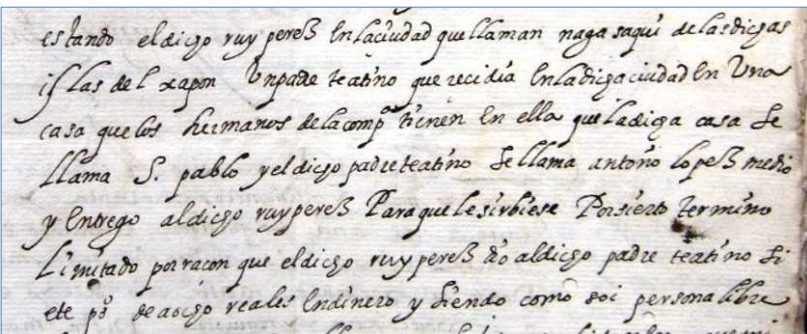 estando el dicho ruy pereз En la ciudad que llaman naga saqui de las dichas
islas del xapon Un padre teatino que recidia En la dicha ciudad En Una
casa que los hermanos de la compª tienen En ella que la dicha casa se
llama S. pablo y el dicho padre teatino se llama antonio lopeз me dio
y Entrego al dicho ruy pereз Para que le sirbiese Por sierto termino
Limitado por racon que el dicho ruy pereз dio al dicho padre teatino si
ete pºs de a ocho reales En dinero y siendo como soi persona libre